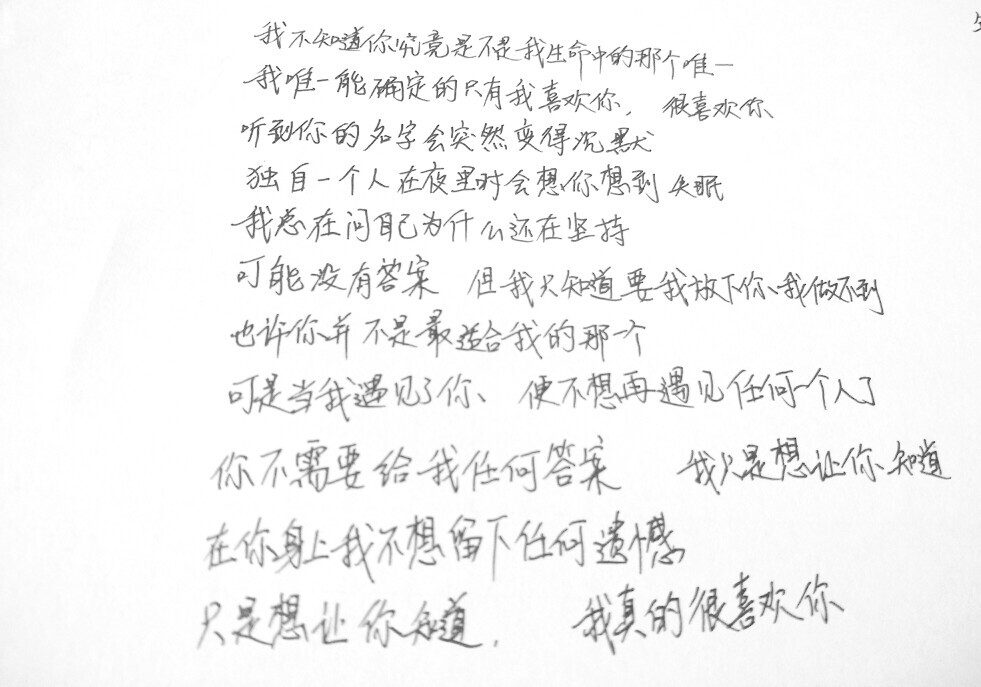 我不知道你究竟是不是我生命中的那个唯一
我唯一能确定的只有我喜欢你， 很喜欢你
听到你的名字会突然变得沉默
独自一个人在夜里时会想你想到失眠
我总在问自己为什么还在坚持
可能没有答案 但我只知道要我放下你、我做不到
也许你并不是最适合我的那个
可是当我遇见了你、 便不想再遇见任何一个人了
你不需要给我任何答案 我只是想让你知道
在你身上我不想留下任何遗憾
只是想让你知道， 我真的很喜欢你